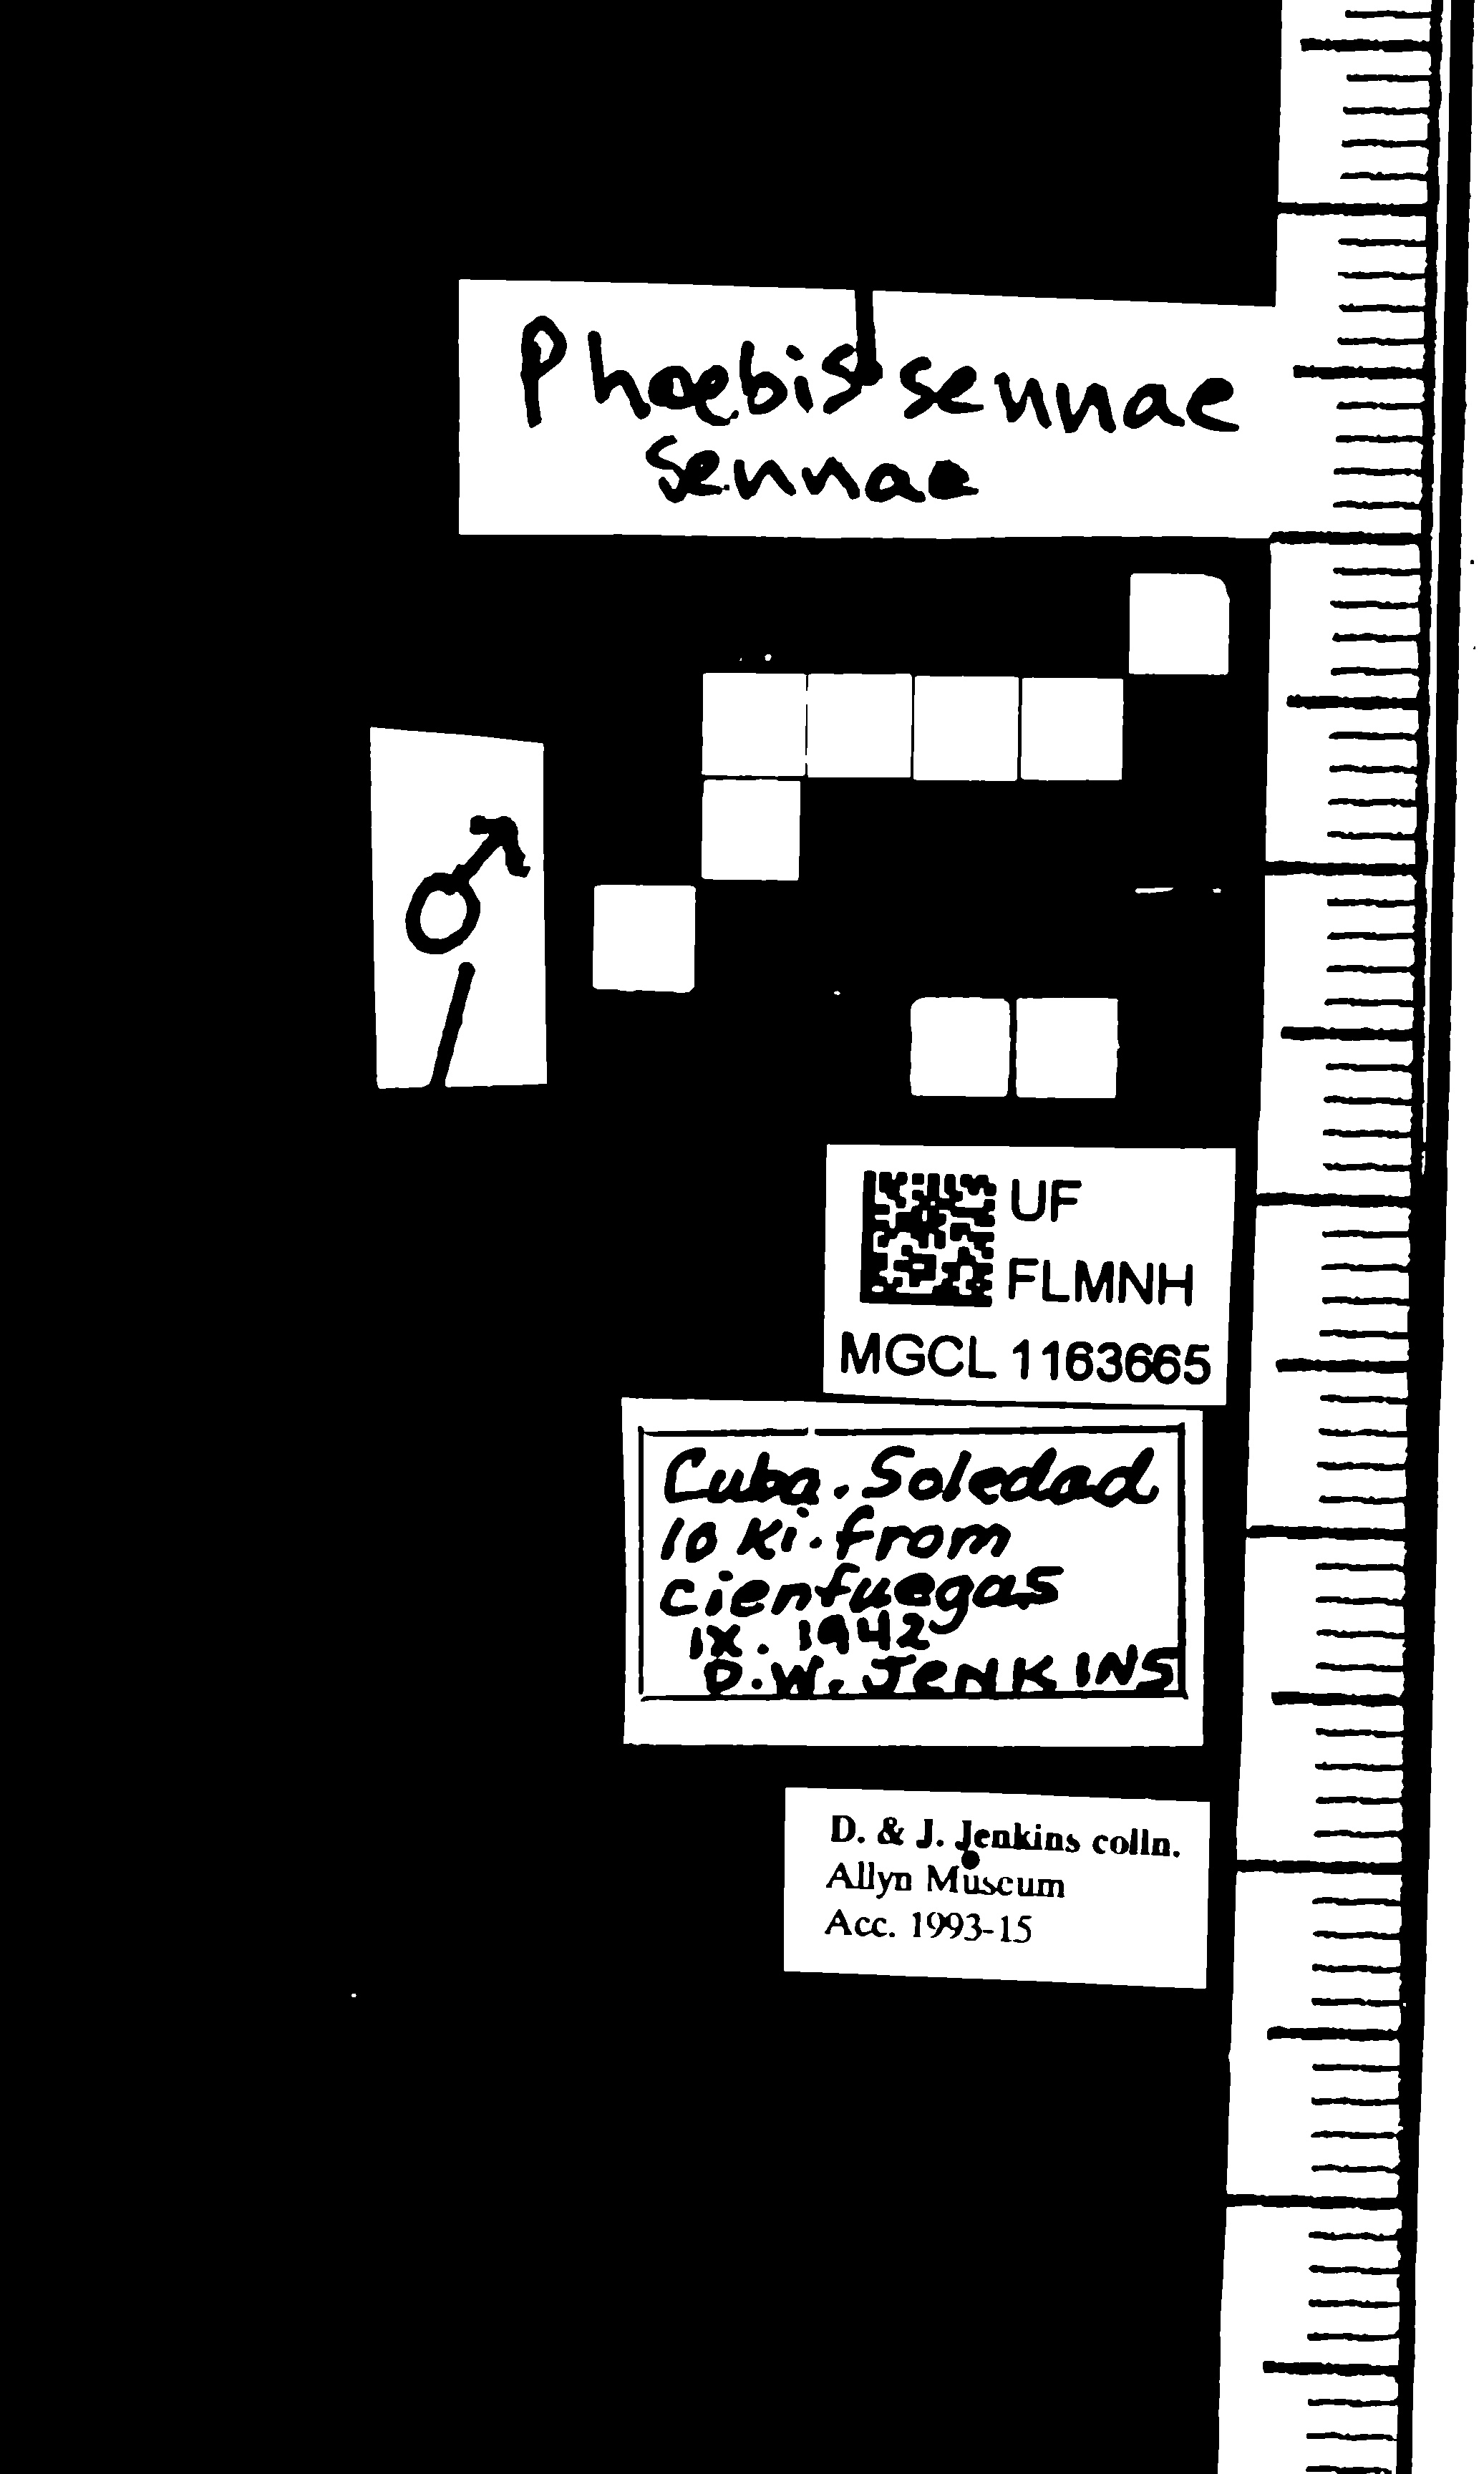 Phoebis sennae
sennae
♂
UF
FLMNH
MGCL 1163665
Cuba. Soledad
10 Ki. from
cienfuegas
IX. 1942
D.W. JENKINS
D. & J. Jenkins colln.
Allyn Museum
Acc. 1993-15